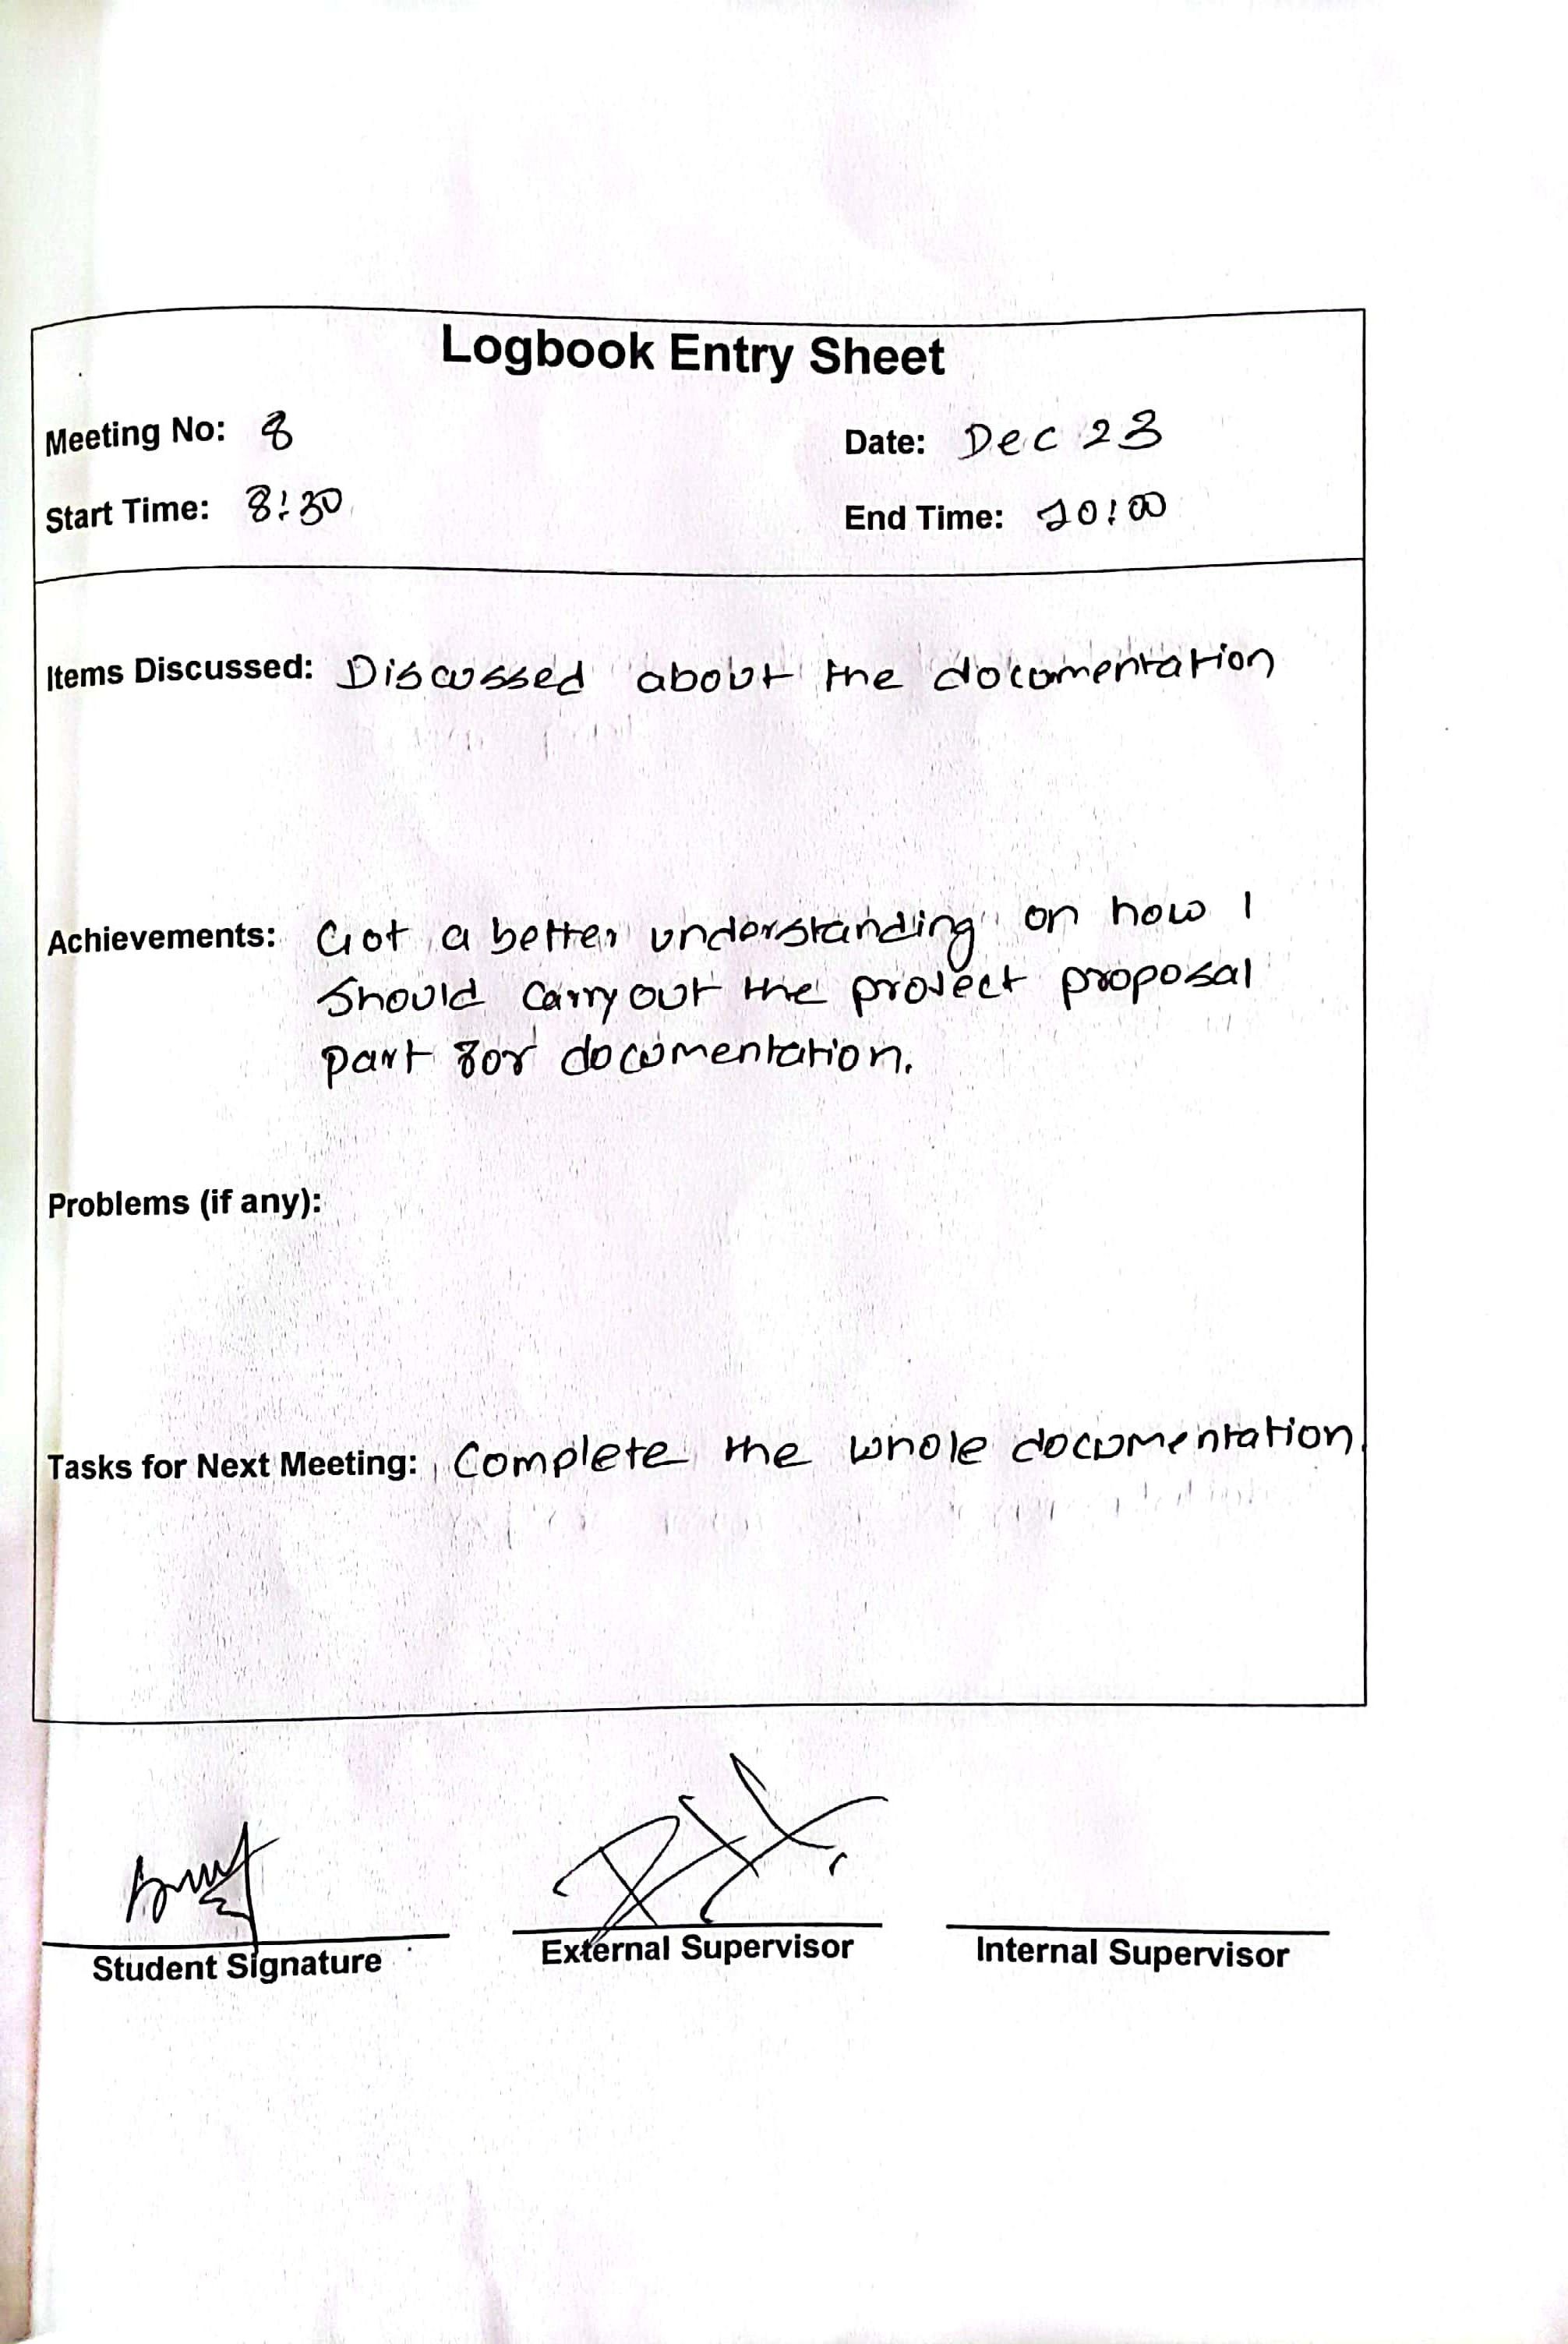 Logbook Entry Sheet
Meeting No: 8 Date: Dec 23
Start Time: 8:30 End Time: 10:00
Items Discussed: Discussed about the documentation
Achievements: Got a better understanding on how I
should carry out the project proposal
part for documentation.
Problems (if any):
Tasks for Next Meeting: Complete the whole documentation.
Student Signature External Supervisor Internal Supervisor